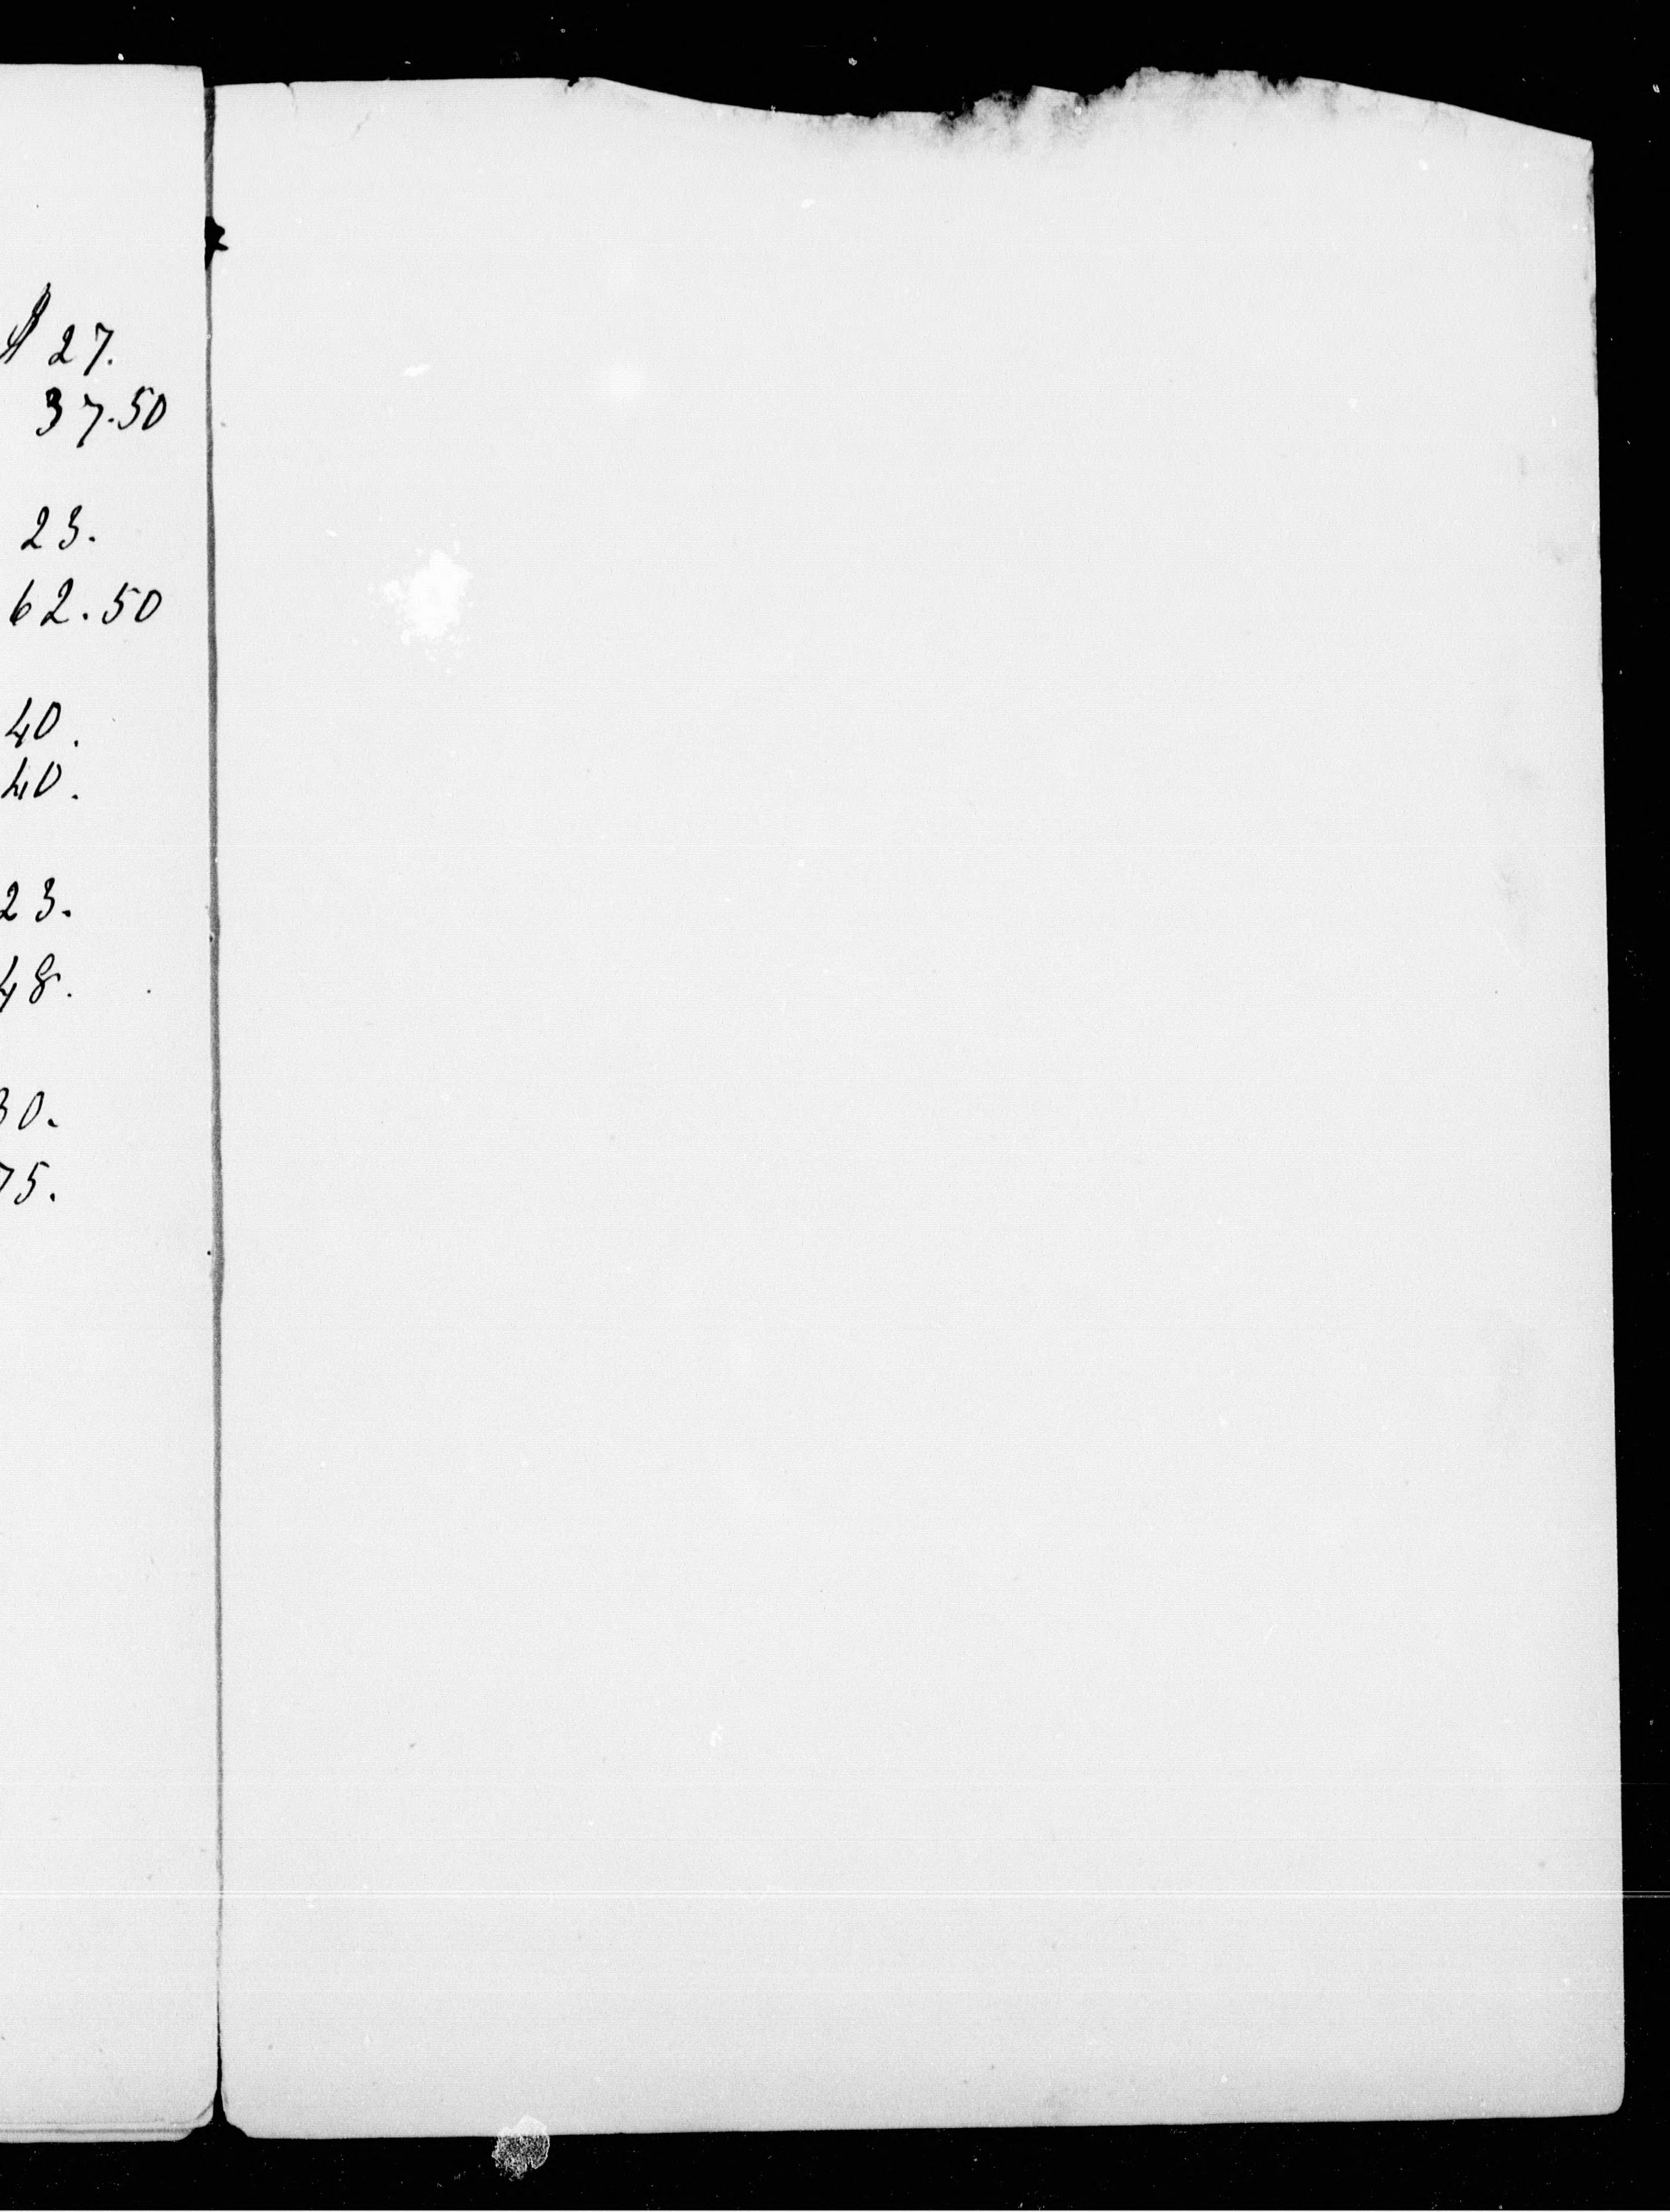 $ 27.
37.50
23.
62.50
40.
40.
23.
48.
30.
75.